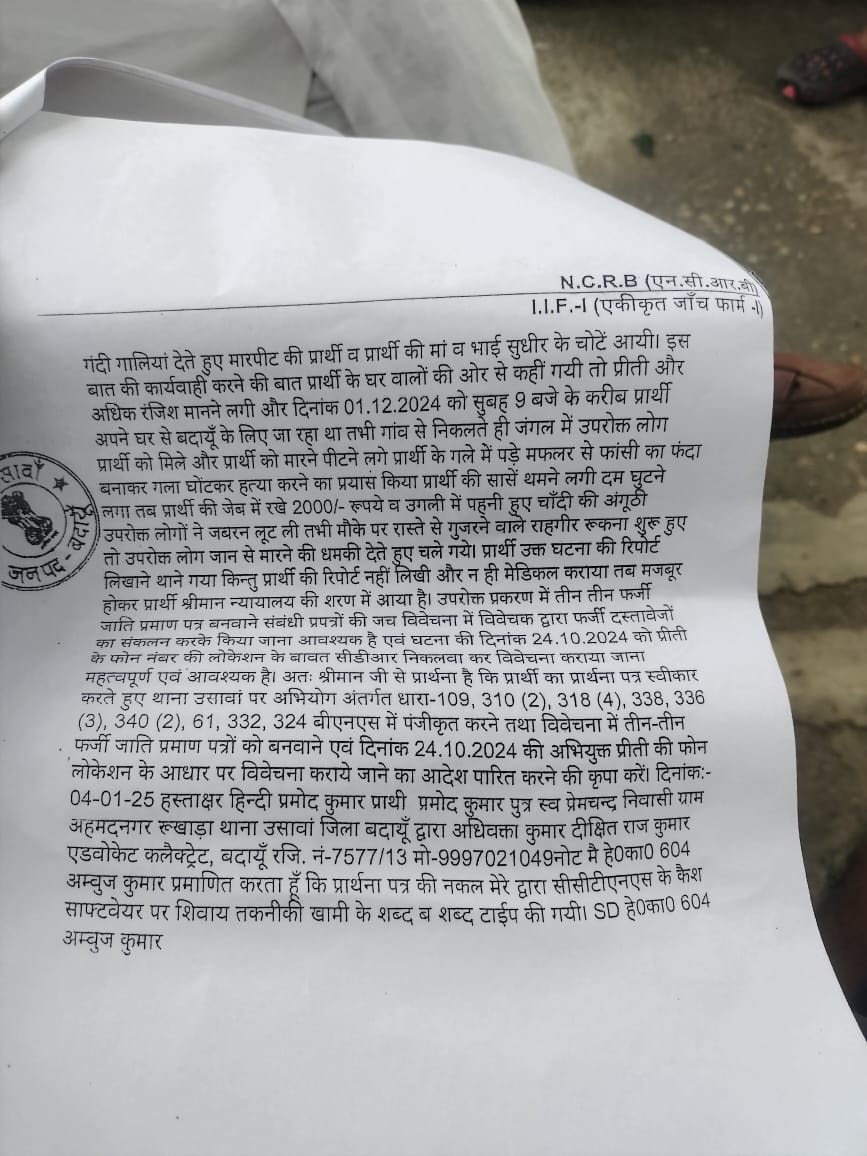 N.C.R.B (एन.सी.आर.बी)
I.I.F.-I (एकीकृत जाँच फार्म -I)
गंदी गालियां देते हुए मारपीट की प्रार्थी व प्रार्थी की मां व भाई सुधीर के चोटें आयी। इस
बात की कार्यवाही करने की बात प्रार्थी के घर वालों की ओर से कहीं गयी तो प्रीती और
अधिक रंजिश मानने लगी और दिनांक 01.12.2024 को सुबह 9 बजे के करीब प्रार्थी
अपने घर से बदायूँ के लिए जा रहा था तभी गांव से निकलते ही जंगल में उपरोक्त लोग
प्रार्थी को मिले और प्रार्थी को मारने पीटने लगे प्रार्थी के गले में पड़े मफलर से फांसी का फंदा
बनाकर गला घोंटकर हत्या करने का प्रयासं किया प्रार्थी की सासें थमने लगी दम घुटने
लगा तब प्रार्थी की जेब में रखे 2000/- रूपये व उगली में पहनी हुए चाँदी की अंगूठी
उपरोक्त लोगों ने जबरन लूट ली तभी मौके पर रास्ते से गुजरने वाले राहगीर रूकना शुरू हुए
तो उपरोक्त लोग जान से मारने की धमकी देते हुए चले गये। प्रार्थी उक्त घटना की रिपोर्ट
लिखाने थाने गया किन्तु प्रार्थी की रिपोर्ट नहीं लिखी और न ही मेडिकल कराया तब मजबूर
होकर प्रार्थी श्रीमान न्यायालय की शरण में आया है। उपरोक्त प्रकरण में तीन तीन फर्जी
जाति प्रमाण पत्र बनवाने संबंधी प्रपत्रों की जच विवेचना में विवेचक द्वारा फर्जी दस्तावेजों
का संकलन करके किया जाना आवश्यक है एवं घटना की दिनांक 24.10.2024 को प्रीती
के फोन नंबर की लोकेशन के बावत सीडीआर निकलवा कर विवेचना कराया जाना
महत्वपूर्ण एवं आवश्यक है। अतः श्रीमान जी से प्रार्थना है कि प्रार्थी का प्रार्थना पत्र स्वीकार
करते हुए थाना उसावां पर अभियोग अंतर्गत धारा-109, 310 (2), 318 (4), 338, 336
(3), 340 (2), 61, 332, 324 बीएनएस में पंजीकृत करने तथा विवेचना में तीन-तीन
फर्जी जाति प्रमाण पत्रों को बनवाने एवं दिनांक 24.10.2024 की अभियुक्त प्रीती की फोन
लोकेशन के आधार पर विवेचना कराये जाने का आदेश पारित करने की कृपा करें। दिनांक:-
04-01-25 हस्ताक्षर हिन्दी प्रमोद कुमार प्राथी प्रमोद कुमार पुत्र स्व प्रेमचन्द्र निवासी ग्राम
अहमदनगर रूखाड़ा थाना उसावां जिला बदायूँ द्वारा अधिवक्ता कुमार दीक्षित राज कुमार
एडवोकेट कलैक्ट्रेट, बदायूँ रजि. नं-7577/13 मो-9997021049नोट मै हे0का0 604
अम्बुज कुमार प्रमाणित करता हूँ कि प्रार्थना पत्र की नकल मेरे द्वारा सीसीटीएनएस के कैश
साफ्टवेयर पर शिवाय तकनीकी खामी के शब्द ब शब्द टाईप की गयी। SD हे0का0 604
अम्बुज कुमार
सावाँ
जनपद - बदायूँ